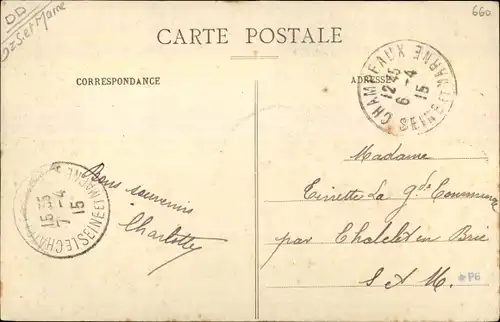 DD
Dz S. et Marne
660
CARTE POSTALE
CORRESPONDANCE
ADRESSE
CHAMPEAUX
12 45
6 - 4
15
SEINE ET MARNE
Madame
Tinette La Gde Commune
par Chatelet en Brie
S & M.
Bons souvenirs
Charlotte
LE CHATELET
15 35
7 - 4
15
SEINE ET MARNE
*P6